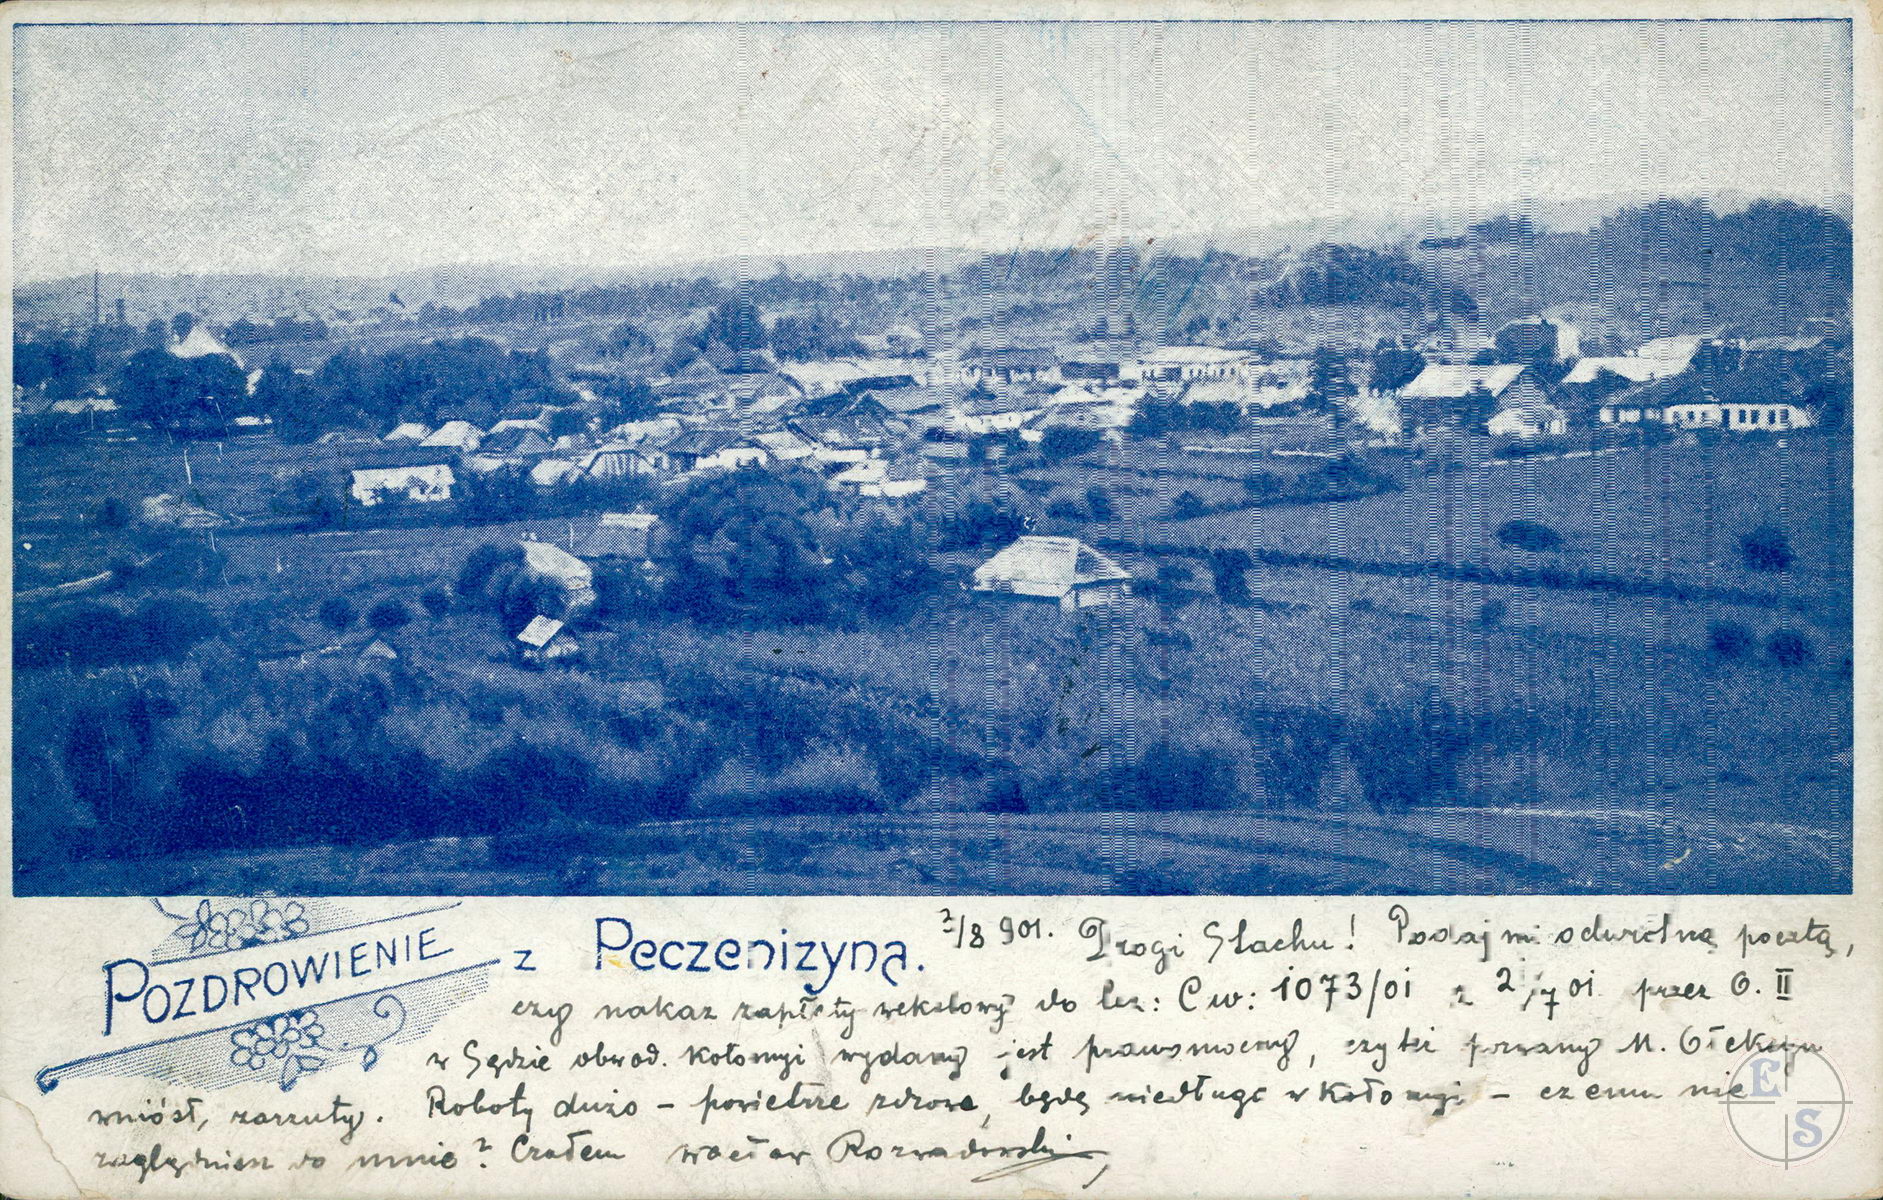 POZDROWIENIE z Peczeniżyna. 2/8 901. Drogi Stachu! Podaj mi odwrotną pocztą,
czy nakaz zapłaty wekslowy do lcz: Cw: 1073/01 z 2/7 01 przez O. II
w Sądzie obwod. Kołomyi wydany jest prawomocny, czy też pozwany M.
wniósł, zarzuty. Roboty dużo – powietrze zdrowe, będę niedługo w Kołomyi – czemu nie
zaglądniesz do mnie? Czołem Wacław Rozwadowski
E S